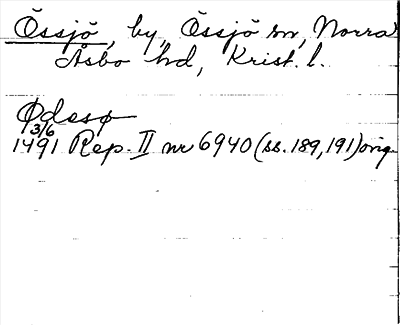 Össjö, by, Össjö sn, Norra
Åsbo hd, Krist. l.
Ødesø
3/6
1491 Rep. II nr 6940 (ss. 189, 191) orig.